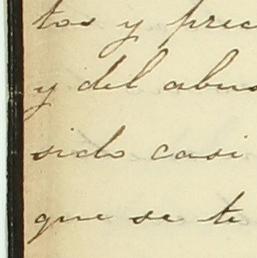 tos y prec
y del abus
sido casi
que se te